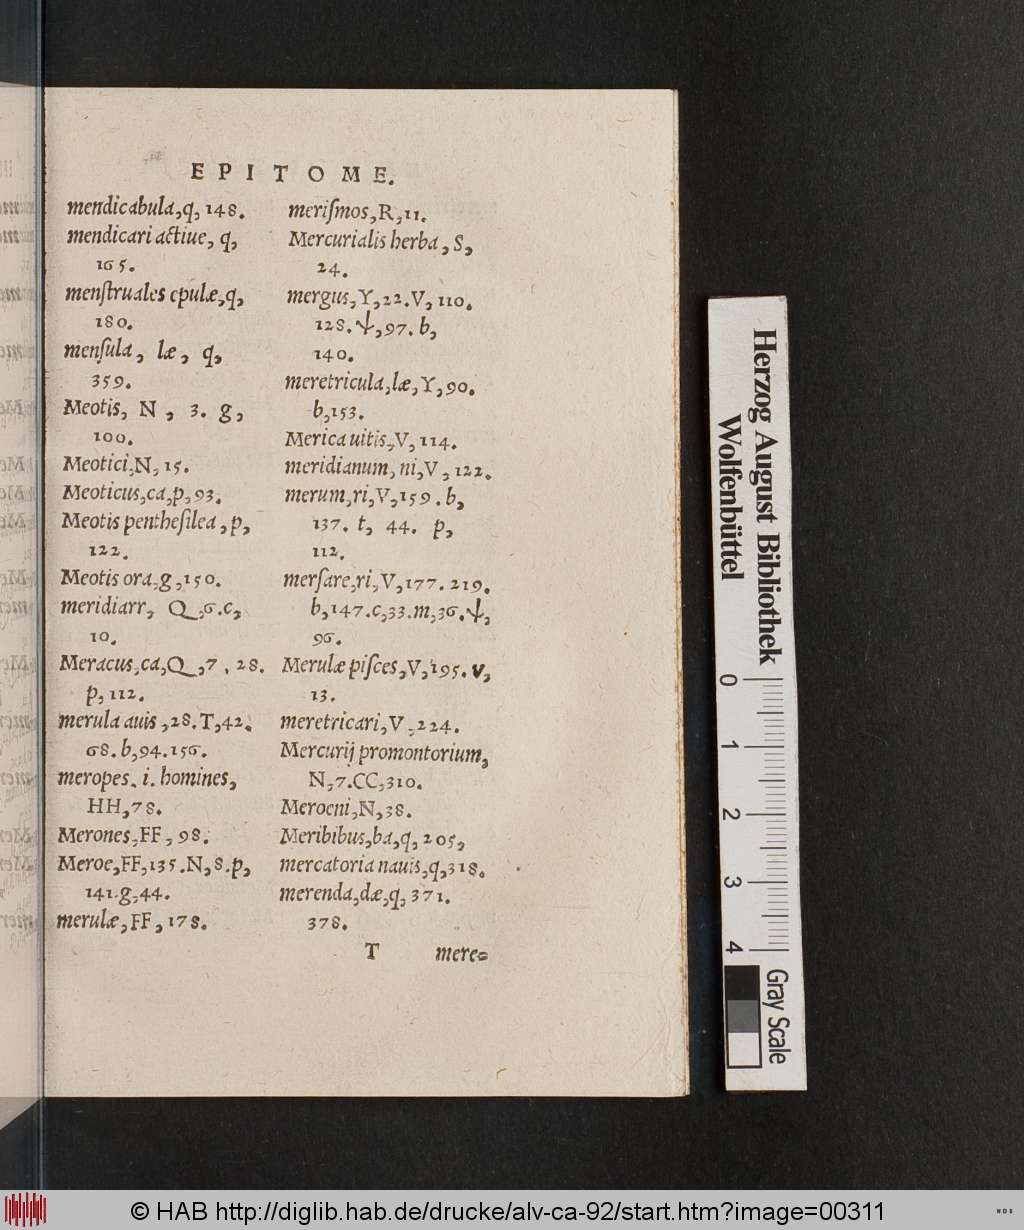 EPITOME.
mendicabula,q, 148.
mendicari actiue, q,
165.
menſtruales epulæ,q,
180.
menſula, læ, q,
359.
Meotis, N, 3. g,
100.
Meotici,N, 15.
Meoticus,ca,p,93.
Meotis pentheſilea,p,
122.
Meotis ora,g,150.
meridiarr, Q,6.c,
10.
Meracus,ca,Q,7.28.
p,112.
merula auis,28.T,42.
68.b,94.156.
meropes.i.homines,
HH,78.
Merones,FF,98.
Meroe,FF,135.N,8.p,
141.g,44.
merulæ,FF,178.
meriſmos,R,11.
Mercurialis herba,S,
24.
mergus,Y,22.V,110.
128.ψ,97.b,
140.
meretricula,læ,Y,90.
b,153.
Merica uitis,V,114.
meridianum,ni,V,122.
merum,ri,V,159.b,
137. t, 44. p,
112.
merſare,ri,V,177.219.
b,147.c,33.m,36.ψ,
96.
Merulæ piſces,V,195.v,
13.
meretricari,V,224.
Mercurij promontorium,
N,7.CC,310.
Meroeni,N,38.
Meribibus,ba,q,205,
mercatoria nauis,q,318.
merenda,dæ,q,371.
378.
T mere=
Herzog August Bibliothek
Wolfenbüttel
0 1 2 3 4
Gray Scale
© HAB http://diglib.hab.de/drucke/alv-ca-92/start.htm?image=00311